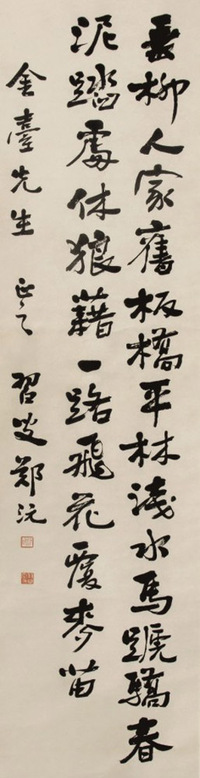 垂柳人家舊板橋平林淺水馬蹏驕春
泥踏處休狼藉一路飛花覆麥苗
金臺先生 正之 習叟鄭沅